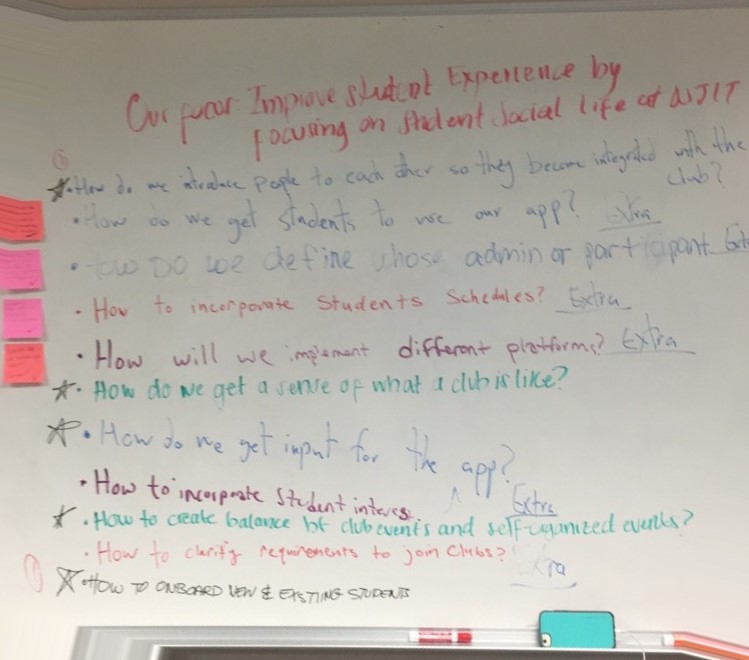 Our focus: Improve Student Experience by
focusing on Student Social life at NJIT
• How do we introduce people to each other so they become integrated with the
club?
• How do we get students to use our app? Extra
• How DO we define whose admin or participant
• How to incorporate Students Schedules? Extra
• How will we implement different platforms? Extra
• How do we get a sense of what a club is like?
• How do we get input for the app?
• How to incorporate Student Extra
• How to create balance bt club events and self-organized events?
• How to clarify requirements to join Clubs? Extra
• HOW TO ONBOARD NEW & EXISTING STUDENTS